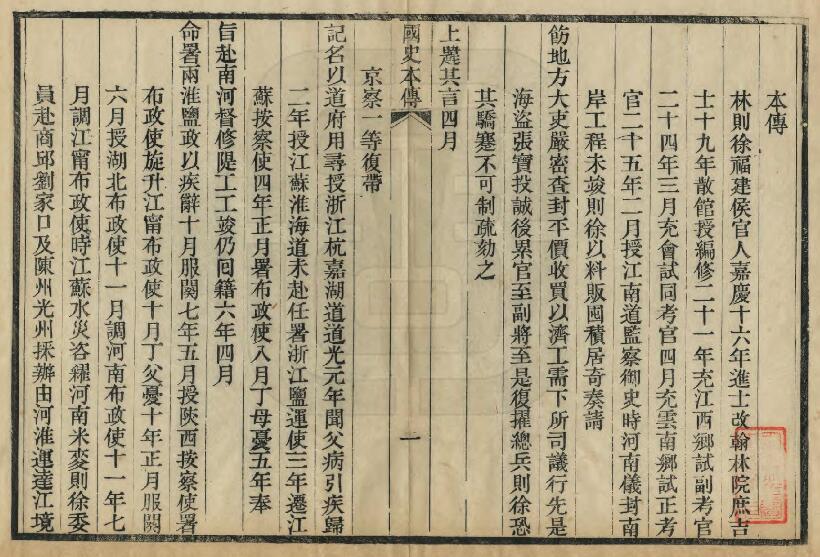 本傳
林則徐福建侯官人嘉慶十六年進士改翰林院庶吉
士十九年散館授編修二十一年充江西鄉試副考官
二十四年三月充會試同考官四月充雲南鄉試正考
官二十五年二月授江南道監察御史時河南儀封南
岸工程未竣則徐以料販囤積居奇奏請
飭地方大吏嚴密查封平價收買以濟工需下所司議行先是
海盜張寶投誠後累官至副將至是復擢總兵則徐恐
其驕蹇不可制疏劾之
上韙其言四月
國史本傳
一
京察一等復帶
記名以道府用尋授浙江杭嘉湖道道光元年聞父病引疾歸
二年授江蘇淮海道未赴任署浙江鹽運使三年遷江
蘇按察使四年正月署布政使八月丁母憂五年奉
旨赴南河督修隄工工竣仍回籍六年四月
命署兩淮鹽政以疾辭十月服闋七年五月授陝西按察使署
布政使旋升江甯布政使十月丁父憂十年正月服闋
六月授湖北布政使十一月調河南布政使十一年七
月調江甯布政使時江蘇水災咨糴河南米麥則徐委
員赴商邱劉家口及陳州光州採辦由河淮運達江境